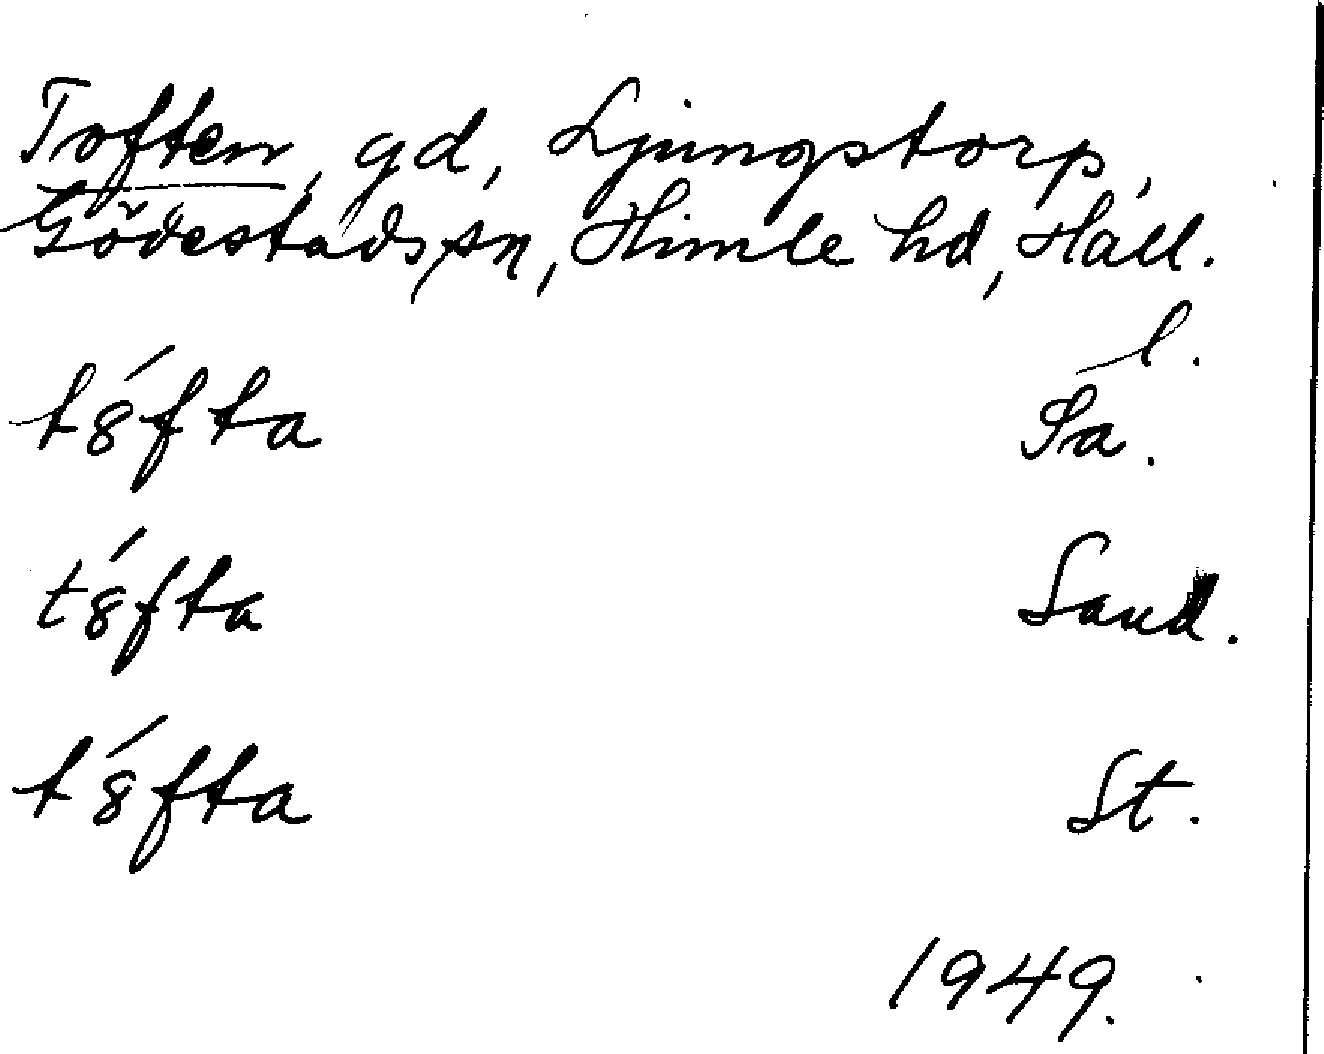 Toften, gd, Ljungstorp,
Gödestads sn, Himle hd, Hall.
l.
t8́fta Sa.
t8́fta Sand.
t8́fta St.
1949.